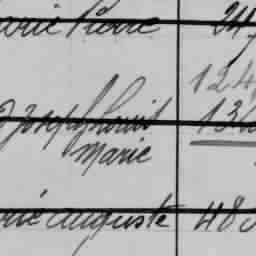 arie Pierre 247
124
Joseph Louis 136
Marie
rie auguste 48